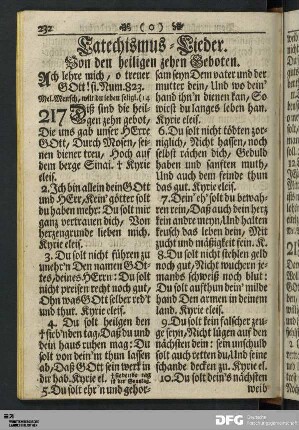 232 ( 0 )
Catechismus-Lieder.
Von den heiligen zehen Geboten.
Ach lehre mich, o treuer
GOtt! si. Num. 323.
Mel. Mensch, wilt du leben seligl. (14
217 Diß sind die heil-
gen zehn gebot,
Die uns gab unser HErre
GOtt, Durch Mosen, sei-
nen diener treu, Hoch auf
dem berge Sinai. † Kyrie
eleis.
2. Ich bin allein dein GOtt
und HErr, Kein götter solt
du haben mehr: Du solt mir
gantz vertrauen dich, Von
hertzengrunde lieben mich.
Kyrie eleis.
3. Du solt nicht führen zu
unehr'n Den namen GOt-
tes, deines HErrn: Du solt
nicht preisen recht noch gut,
Ohn was GOtt selber red't
und thut. Kyrie eleis.
4. Du solt heilgen den
† sieb'nden tag, Daß du und
dein hauß ruhen mag: Du
solt von dein'm thun lassen
ab, Daß GOtt sein werk in
dir hab. Kyrie el.
5. Du solt ehr'n und gehor-
sam seyn Dem vater und der
mutter dein, Und wo dein'
hand ihn'n dienen kan, So
wirst du langes leben han.
Kyrie eleis.
6. Du solt nicht tödten zor-
niglich, Nicht hassen, noch
selbst rächen dich, Gedult
haben und sanften muth,
Und auch dem feinde thun
das gut. Kyrie eleis.
7. Dein' eh' solt du bewah-
ren rein, Daß auch dein hertz
kein andre meyn, Und halten
keusch das leben dein, Mit
zucht und mäßigkeit fein. K.
8. Du solt nicht stehlen geld
noch gut, Nicht wuchern je-
mands schweiß noch blut:
Du solt aufthun dein' milde
hand Den armen in deinem
land. Kyrie eleis.
9. Du solt kein falscher zeu-
ge seyn, Nicht lügen auf den
nächsten dein: sein unschuld
solt auch retten du, Und seine
schande decken zu. Kyrie el.
10. Du solt dein's nächsten
weib
DFG Deutsche
Forschungsgemeinschaft